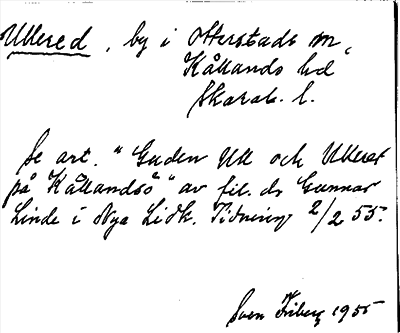 Ullered, by i Otterstads sn,
Kållands hd
Skarab. l.
Se art. "Guden Ull och Ulleret
på Kållandsö" av fil. dr Gunnar
Linde i Nya Lidk. Tidning 2/2 55.
Sven Friberg 1955